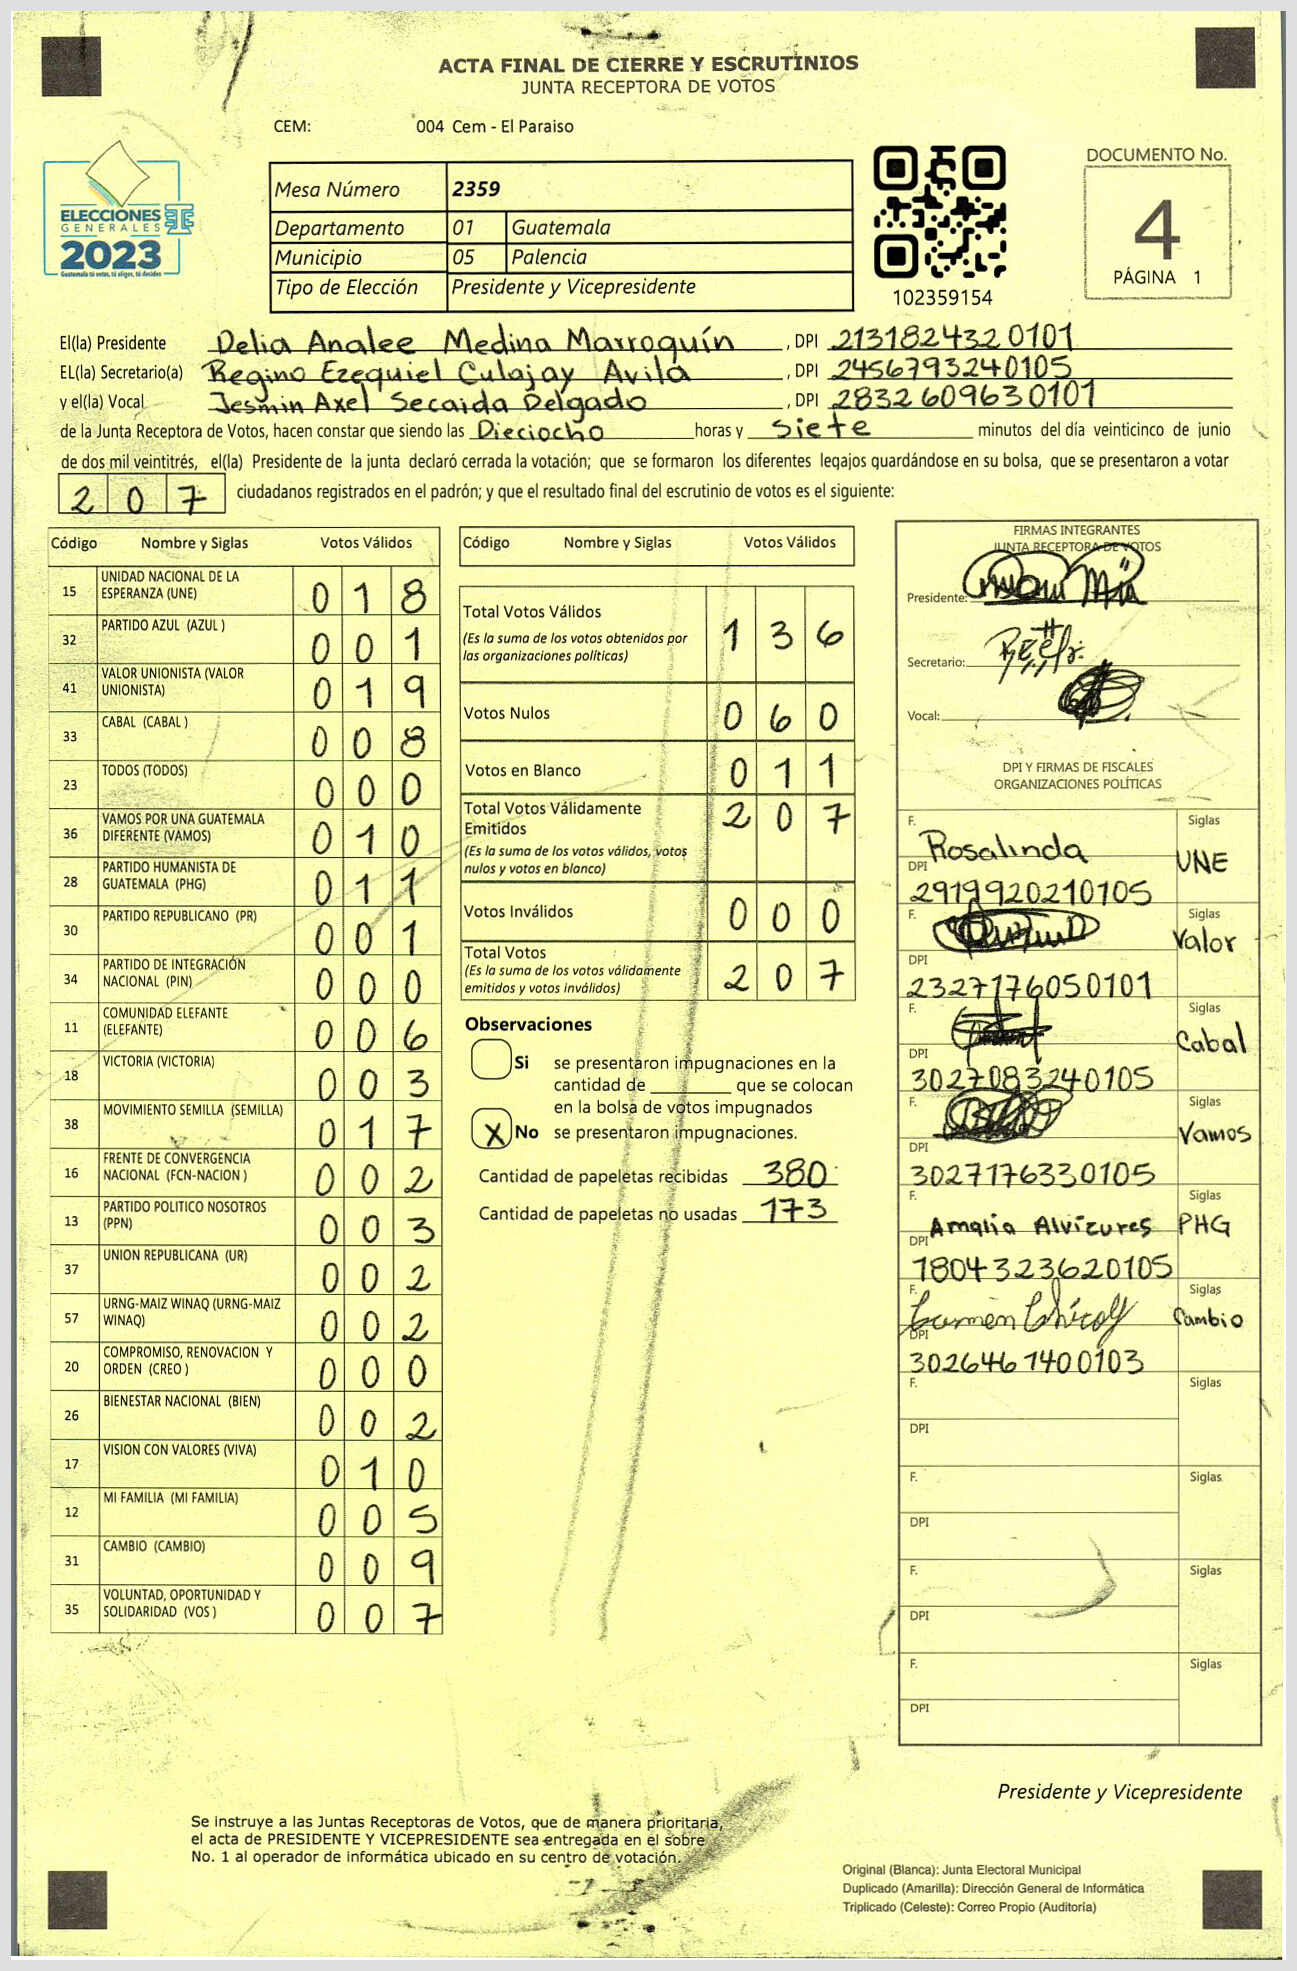 ACTA FINAL DE CIERRE Y ESCRUTINIOS
JUNTA RECEPTORA DE VOTOS
CEM: 004 Cem - El Paraiso
ELECCIONES
GENERALES
2023
Guatemala tú votas, tú eliges, tú decides
Mesa Número 2359
Departamento 01 Guatemala
Municipio 05 Palencia
Tipo de Elección Presidente y Vicepresidente
102359154
DOCUMENTO No.
4
PÁGINA 1
El(la) Presidente Delia Analee Medina Marroquín, DPI 2131824320101
EL(la) Secretario(a) Regino Ezequiel Culajay Avila, DPI 2456793240105
y el(la) Vocal Jesmin Axel Secaida Delgado, DPI 2832609630101
de la Junta Receptora de Votos, hacen constar que siendo las Dieciocho horas y siete minutos del día veinticinco de junio
de dos mil veintitrés, el(la) Presidente de la junta declaró cerrada la votación; que se formaron los diferentes legajos guardándose en su bolsa, que se presentaron a votar
207 ciudadanos registrados en el padrón; y que el resultado final del escrutinio de votos es el siguiente:
Código Nombre y Siglas Votos Válidos
15 UNIDAD NACIONAL DE LA ESPERANZA (UNE) 018
32 PARTIDO AZUL (AZUL ) 001
41 VALOR UNIONISTA (VALOR UNIONISTA) 019
33 CABAL (CABAL ) 008
23 TODOS (TODOS) 000
36 VAMOS POR UNA GUATEMALA DIFERENTE (VAMOS) 010
28 PARTIDO HUMANISTA DE GUATEMALA (PHG) 011
30 PARTIDO REPUBLICANO (PR) 001
34 PARTIDO DE INTEGRACIÓN NACIONAL (PIN) 000
11 COMUNIDAD ELEFANTE (ELEFANTE) 006
18 VICTORIA (VICTORIA) 003
38 MOVIMIENTO SEMILLA (SEMILLA) 017
16 FRENTE DE CONVERGENCIA NACIONAL (FCN-NACION ) 002
13 PARTIDO POLITICO NOSOTROS (PPN) 003
37 UNION REPUBLICANA (UR) 002
57 URNG-MAIZ WINAQ (URNG-MAIZ WINAQ) 002
20 COMPROMISO, RENOVACION Y ORDEN (CREO ) 000
26 BIENESTAR NACIONAL (BIEN) 002
17 VISION CON VALORES (VIVA) 010
12 MI FAMILIA (MI FAMILIA) 005
31 CAMBIO (CAMBIO) 009
35 VOLUNTAD, OPORTUNIDAD Y SOLIDARIDAD (VOS ) 007
Código Nombre y Siglas Votos Válidos
Total Votos Válidos 136
(Es la suma de los votos obtenidos por
las organizaciones políticas)
Votos Nulos 060
Votos en Blanco 011
Total Votos Válidamente Emitidos 207
(Es la suma de los votos válidos, votos
nulos y votos en blanco)
Votos Inválidos 000
Total Votos 207
(Es la suma de los votos válidamente
emitidos y votos inválidos)
Observaciones
Si se presentaron impugnaciones en la
cantidad de ________ que se colocan
en la bolsa de votos impugnados
X No se presentaron impugnaciones.
Cantidad de papeletas recibidas 380
Cantidad de papeletas no usadas 173
FIRMAS INTEGRANTES
JUNTA RECEPTORA DE VOTOS
Presidente:
Secretario:
Vocal:
DPI Y FIRMAS DE FISCALES
ORGANIZACIONES POLÍTICAS
F. Rosalinda Siglas UNE
DPI 2919920210105
F. Siglas Valor
DPI 2327176050101
F. Siglas Cabal
DPI 3027083240105
F. Siglas Vamos
DPI 3027176330105
F. Amalia Alvizures Siglas PHG
DPI 1804323620105
F. Carmen Siglas Cambio
DPI 3026461400103
F. Siglas
DPI
F. Siglas
DPI
F. Siglas
DPI
F. Siglas
DPI
Presidente y Vicepresidente
Se instruye a las Juntas Receptoras de Votos, que de manera prioritaria,
el acta de PRESIDENTE Y VICEPRESIDENTE sea entregada en el sobre
No. 1 al operador de informática ubicado en su centro de votación.
Original (Blanca): Junta Electoral Municipal
Duplicado (Amarilla): Dirección General de Informática
Triplicado (Celeste): Correo Propio (Auditoría)